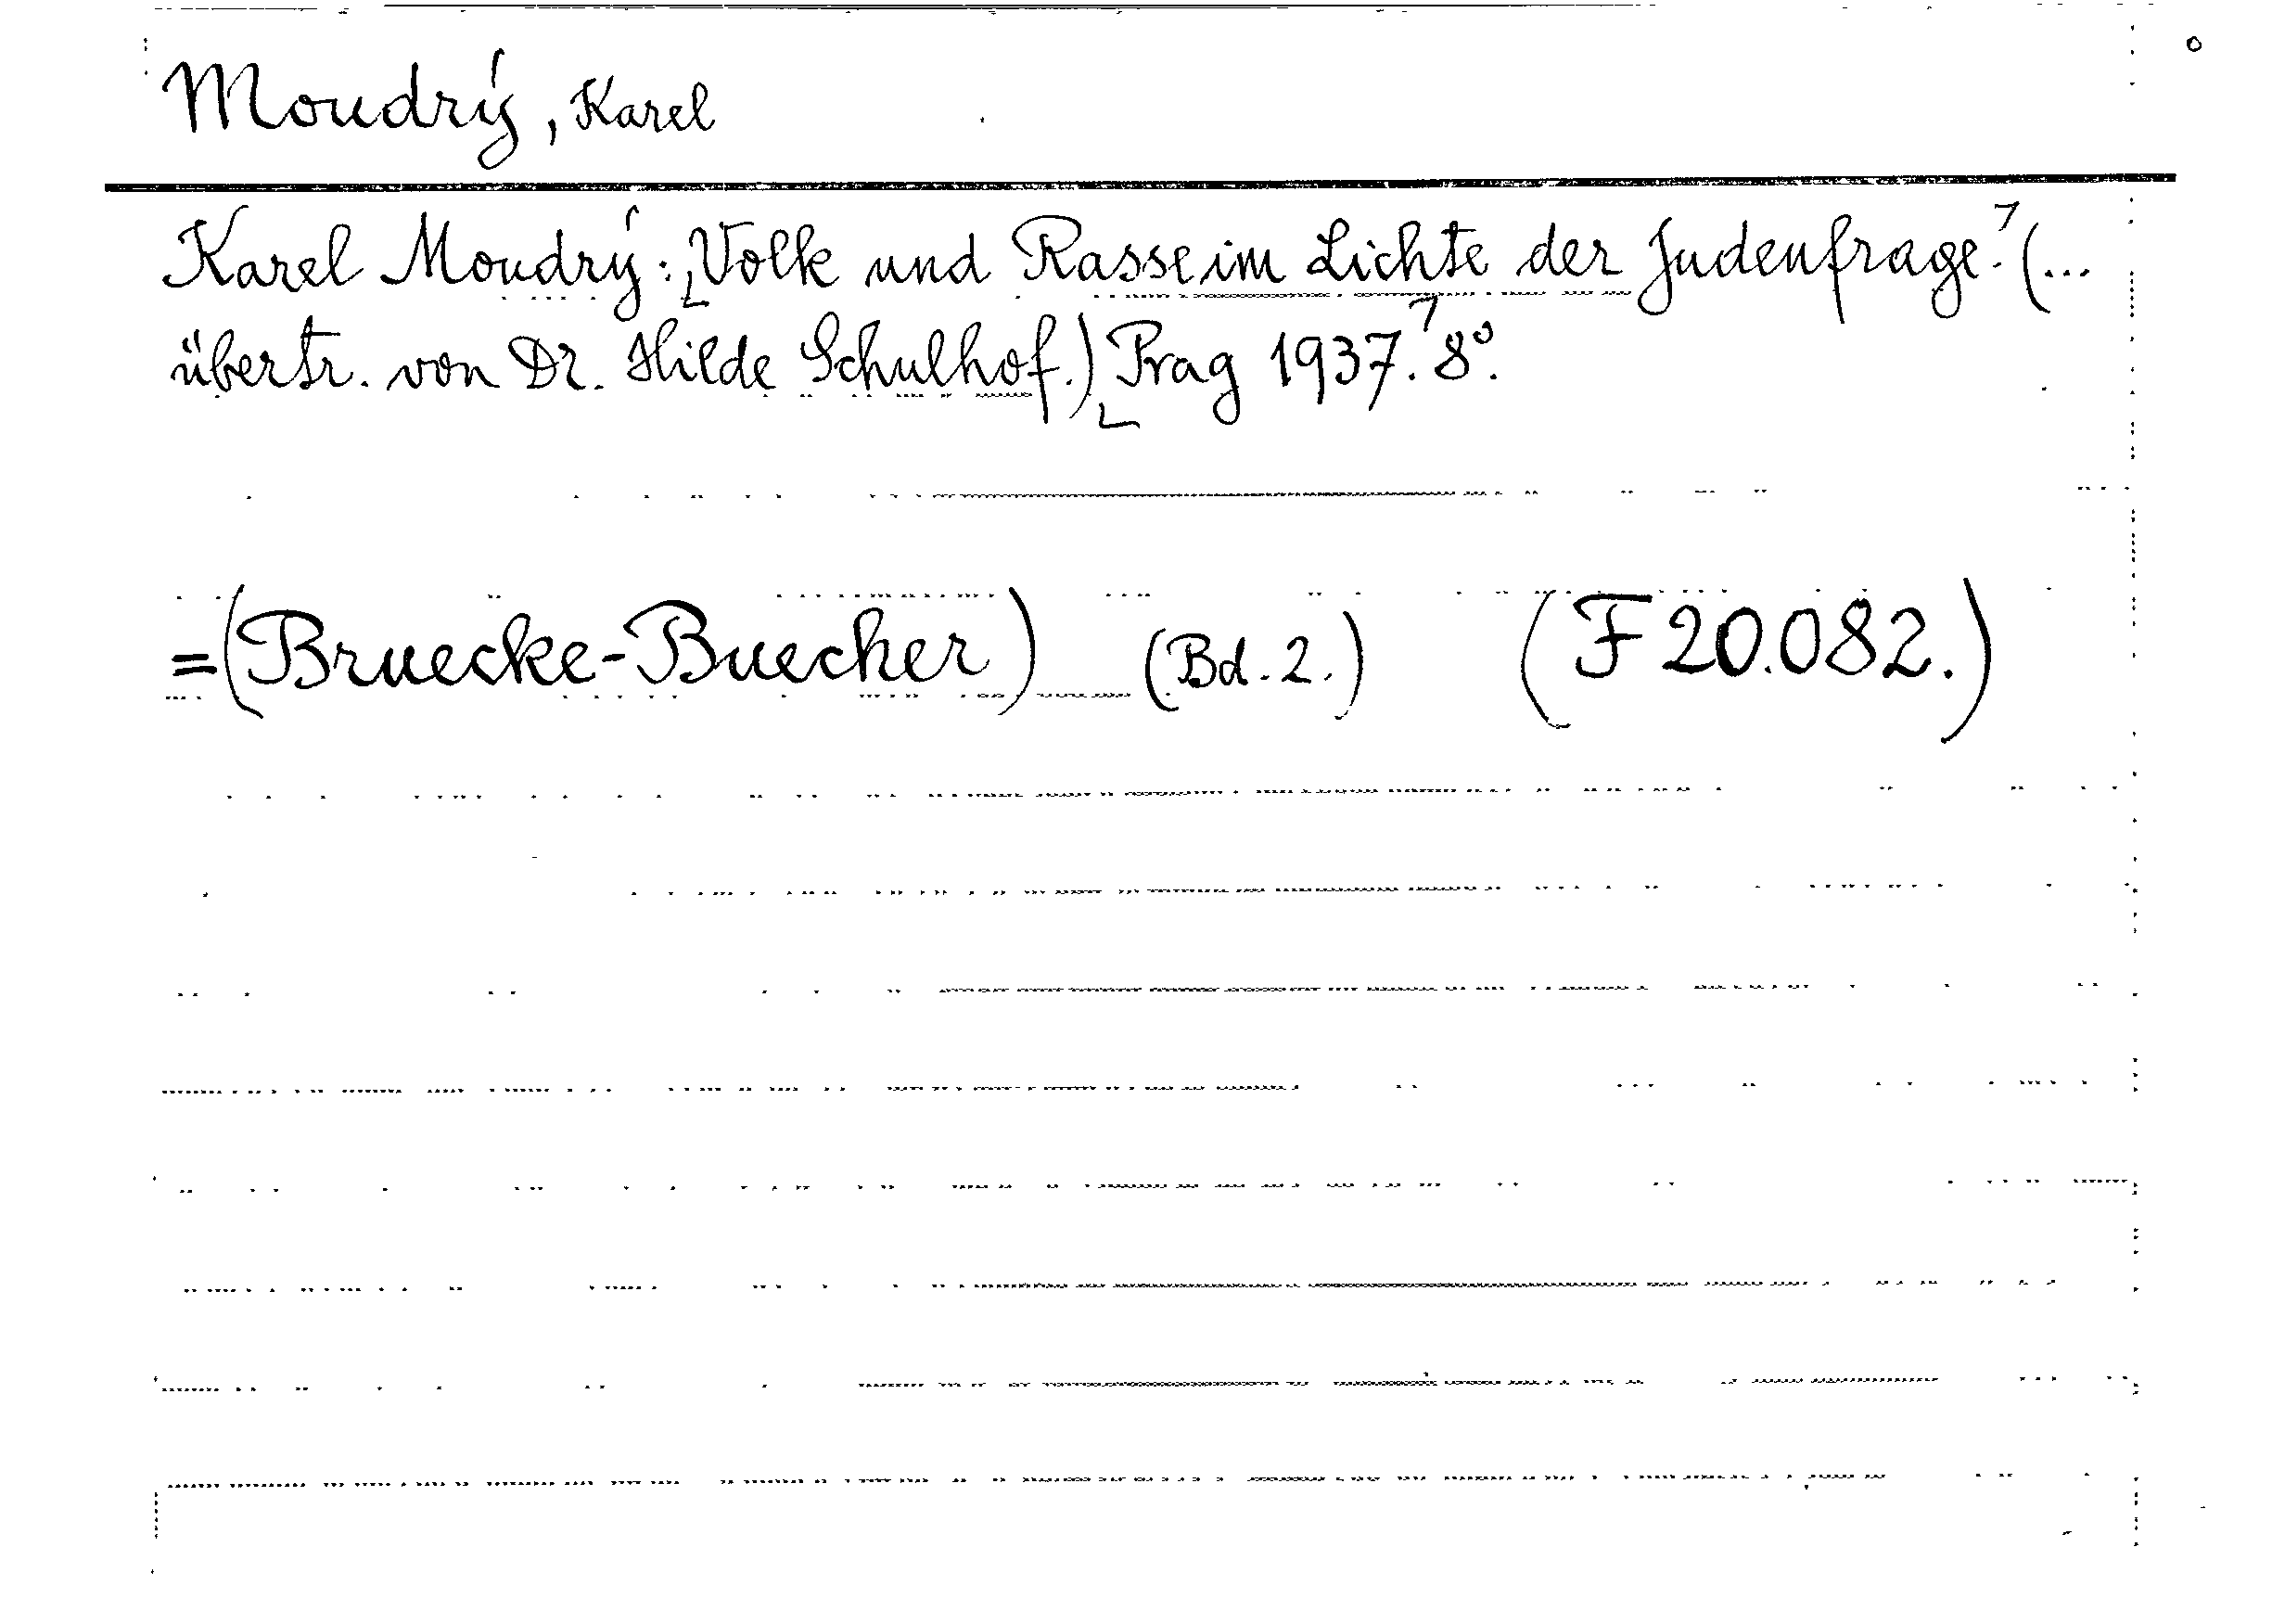 Moudrý, Karel
Karel Moudrý: Volk und Rasse im Lichte der Judenfrage. (...
übertr. von Dr. Hilde Schulhof.) Prag 1937. 8°.
=(Bruecke-Buecher) (Bd. 2.) (F 20.082.)